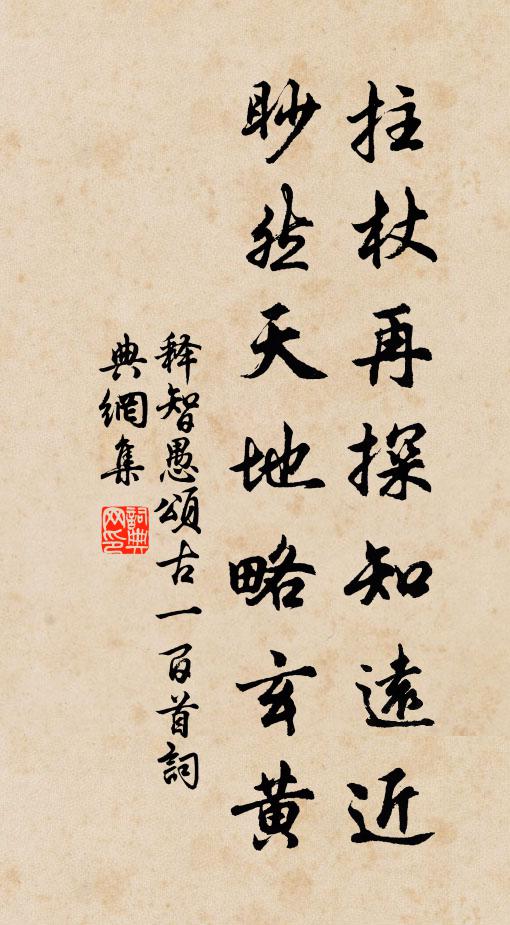 拄杖再探知遠近
眇然天地略玄黄
释智愚頌古一百首詞
典網集
詞典
网印